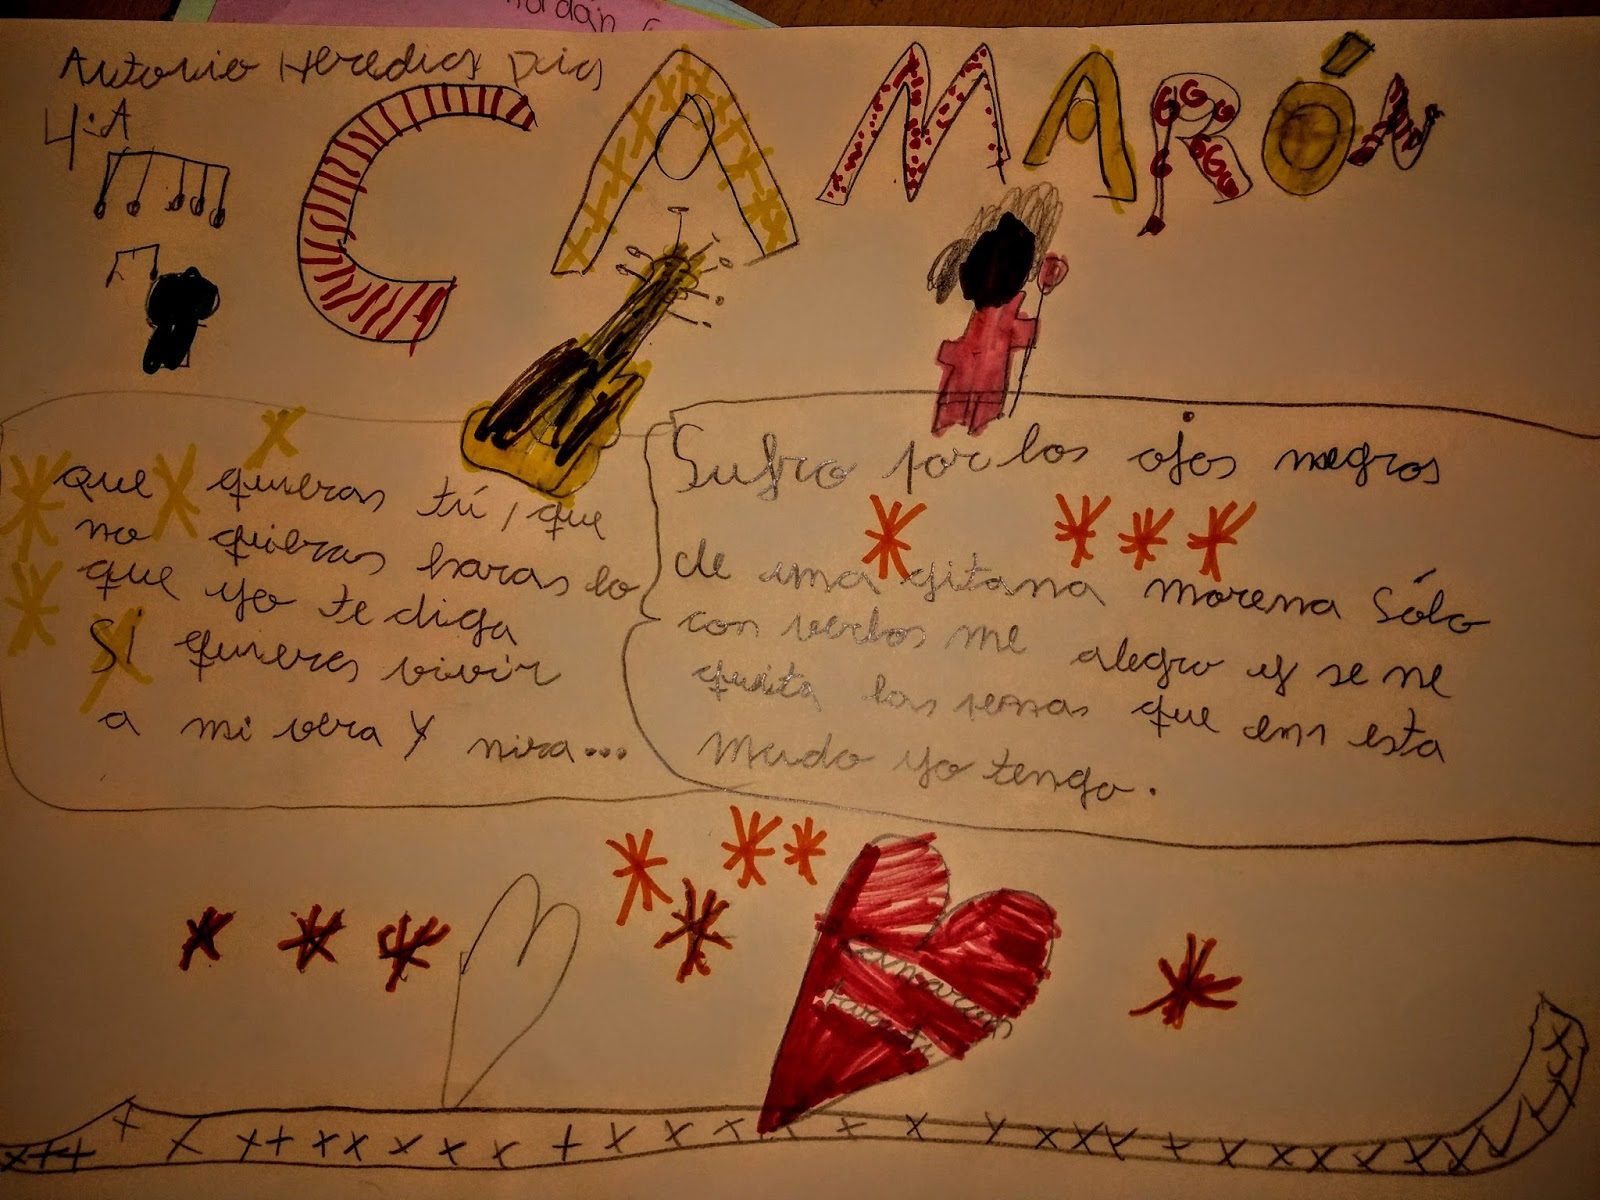 Antonio Heredias
4ºA
CAMARÓN
que quieras tú, que
no quieras haras lo
que yo te diga
Si quieres vivir
a mi vera y mira...
Sufro por los ojos negros
de una gitana morena Sólo
con verlos me alegro y se me
quita las penas que en esta
Mudo yo tengo.